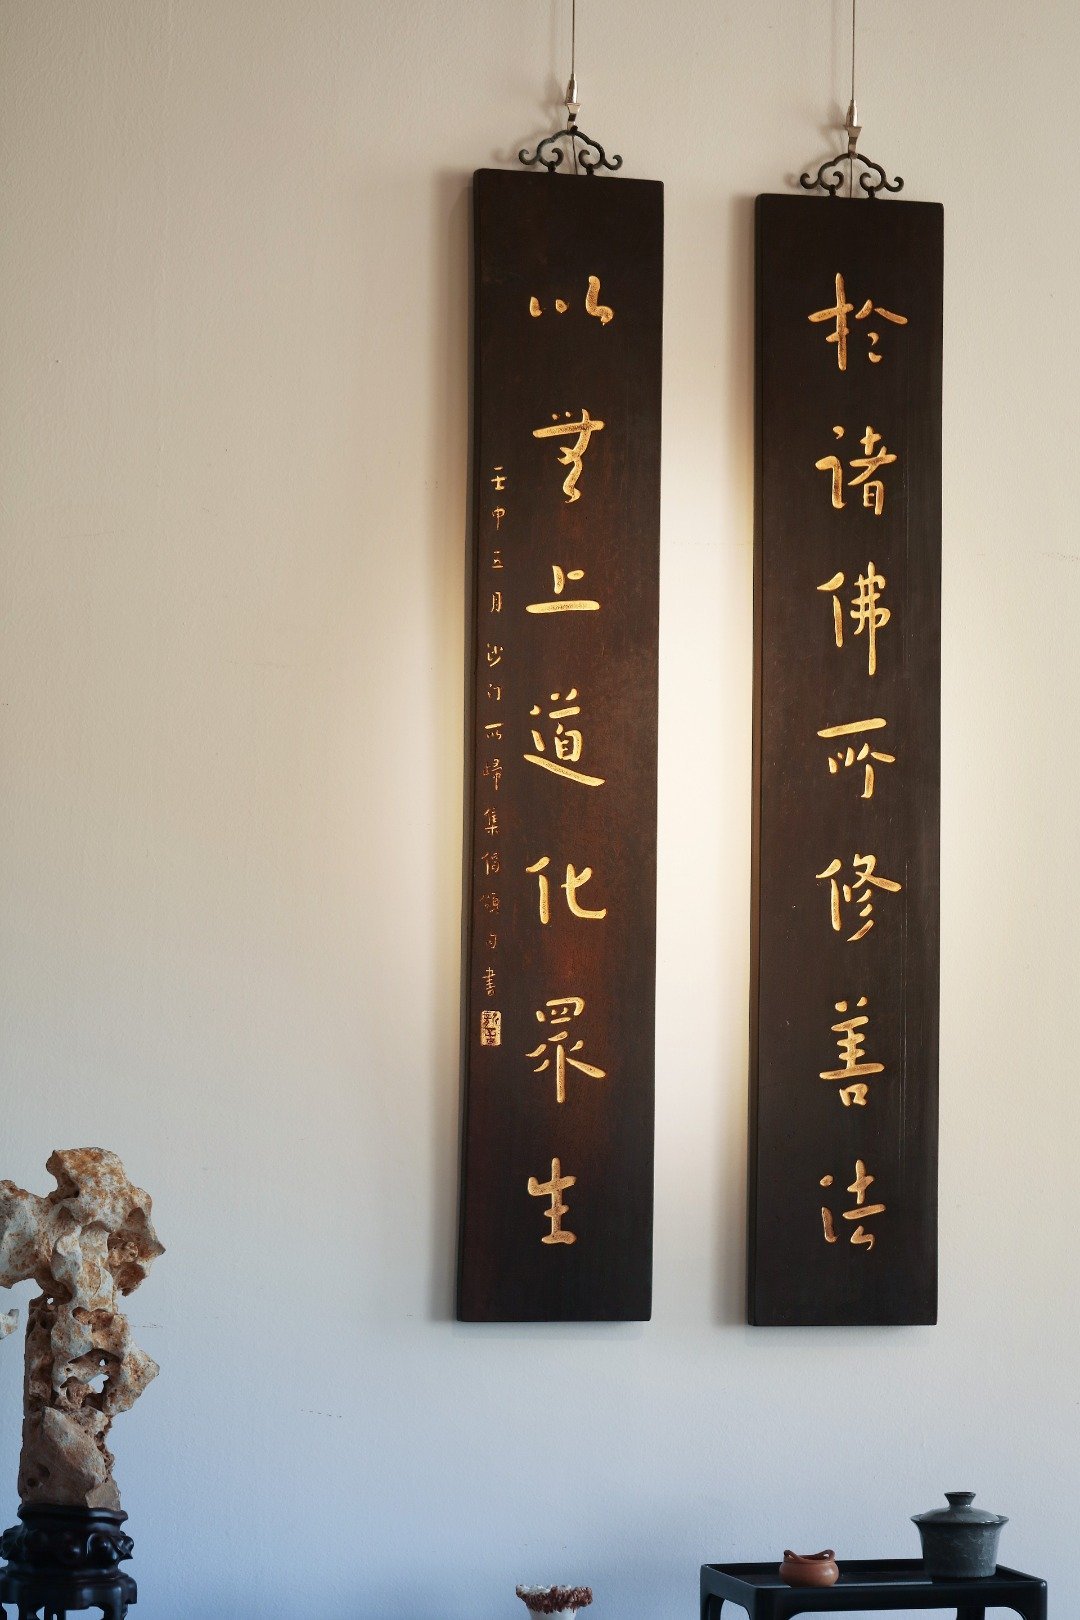 於諸佛所修善法
以無上道化眾生
壬申三月沙门一西歸集偈頌句書